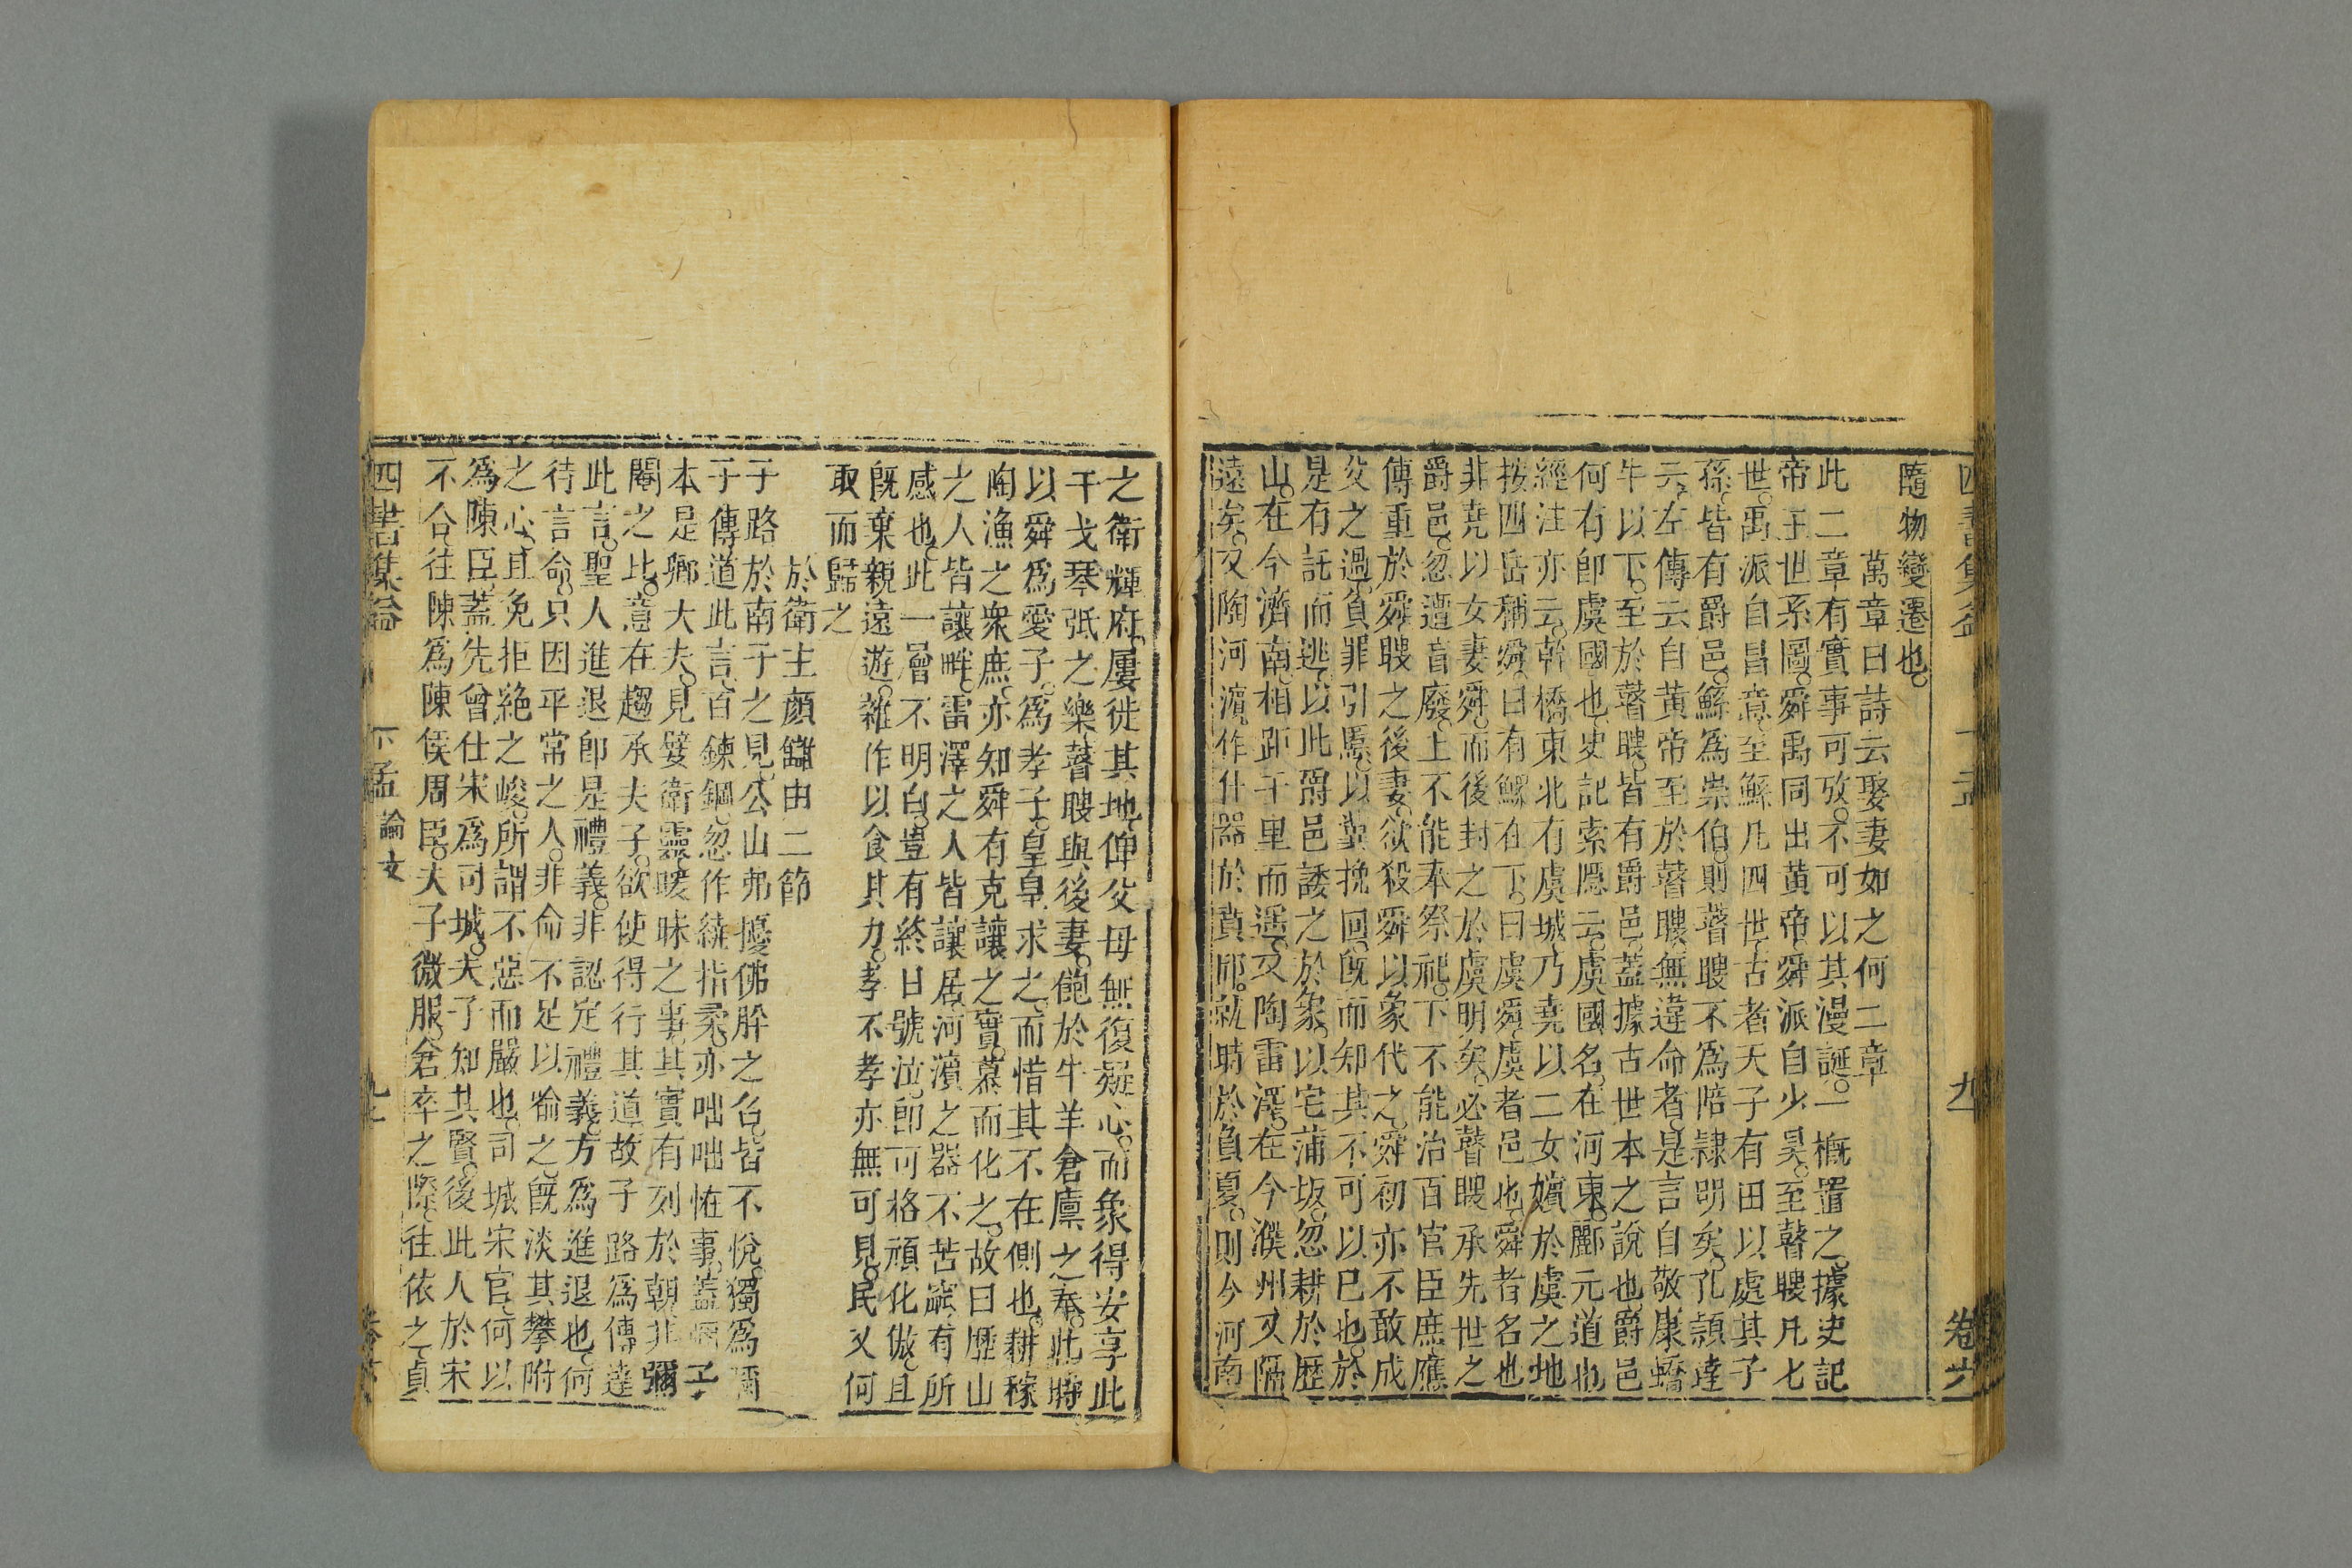 隨物變遷也
萬章曰詩云娶妻如之何二章
此二章有實事可攷不可以其漫誕一槪置之據史記
帝王世系圖舜禹同出黃帝舜派自少昊至瞽瞍凡七
世禹派自昌意至鯀凡四世古者天子有田以處其子
孫皆有爵邑鯀為崇伯則瞽瞍不為陪隷明矣孔頴達
云左傳云自黃帝至於瞽瞍無違命者是言自敬康蟜
牛以下至於瞽瞍皆有爵邑蓋據古世本之說也爵邑
何有卽虞國也史記索隱云虞國名在河東酈元道也
經注亦云幹橋東北有虞城乃堯以二女嬪於虞之地
按四岳稱舜曰有鰥在下曰虞舜虞者邑也舜者名也
非堯以女妻舜而後封之於虞明矣必瞽瞍承先世之
爵邑忽遭盲廢上不能奉祭祀下不能治百官臣庶應
傳重於舜瞍之後妻欲殺舜以象代之舜初亦不敢成
父之過負罪引慝以冀挽回旣而知其不可以已也於
是有託而逃以此爵邑諉之於象以宅蒲坂忽耕於歷
山在今濟南相距千里而遥又陶雷澤在今濮州又隔
遠矣又陶河濵作什器於貴邱就時於負夏則今河南
四書集益
下孟
九
卷六
之衛輝府屢徙其地俾父母無復疑心而象得安享此
干戈琴弤之樂瞽瞍與後妻飽於牛羊倉廩之奉此時
以舜為愛子為孝子皇皇求之而惜其不在側也耕稼
陶漁之衆庶亦知舜有克讓之實慕而化之故曰歷山
之人皆讓畔雷澤之人皆讓居河濵之器不苦窳有所
感也此一層不明白豈有終日號泣卽可格頑化傲且
旣棄親遠遊雜作以食其力孝不孝亦無可見民又何
取而歸之
於衛主顔讎由二節
子路於南子之見公山弗擾佛肸之召皆不悅獨為彌
子傳道此言百鍊鋼忽作繞指柔亦咄咄怪事蓋彌子
本是鄉大夫見嬖衛靈曖昧之事其實有列於朝非彌
閹之比意在趨承夫子欲使得行其道故子路為傳達
此言聖人進退卽是禮義非認定禮義方為進退也何
待言命只因平常之人非命不足以喻之旣淡其攀附
之心且免拒絶之峻所謂不惡而嚴也司城宋官何以
為陳臣蓋先曾仕宋為司城夫子知其賢後此人於宋
不合往陳為陳侯周臣夫子微服倉卒之際往依之貞
四書集益
下孟
論文